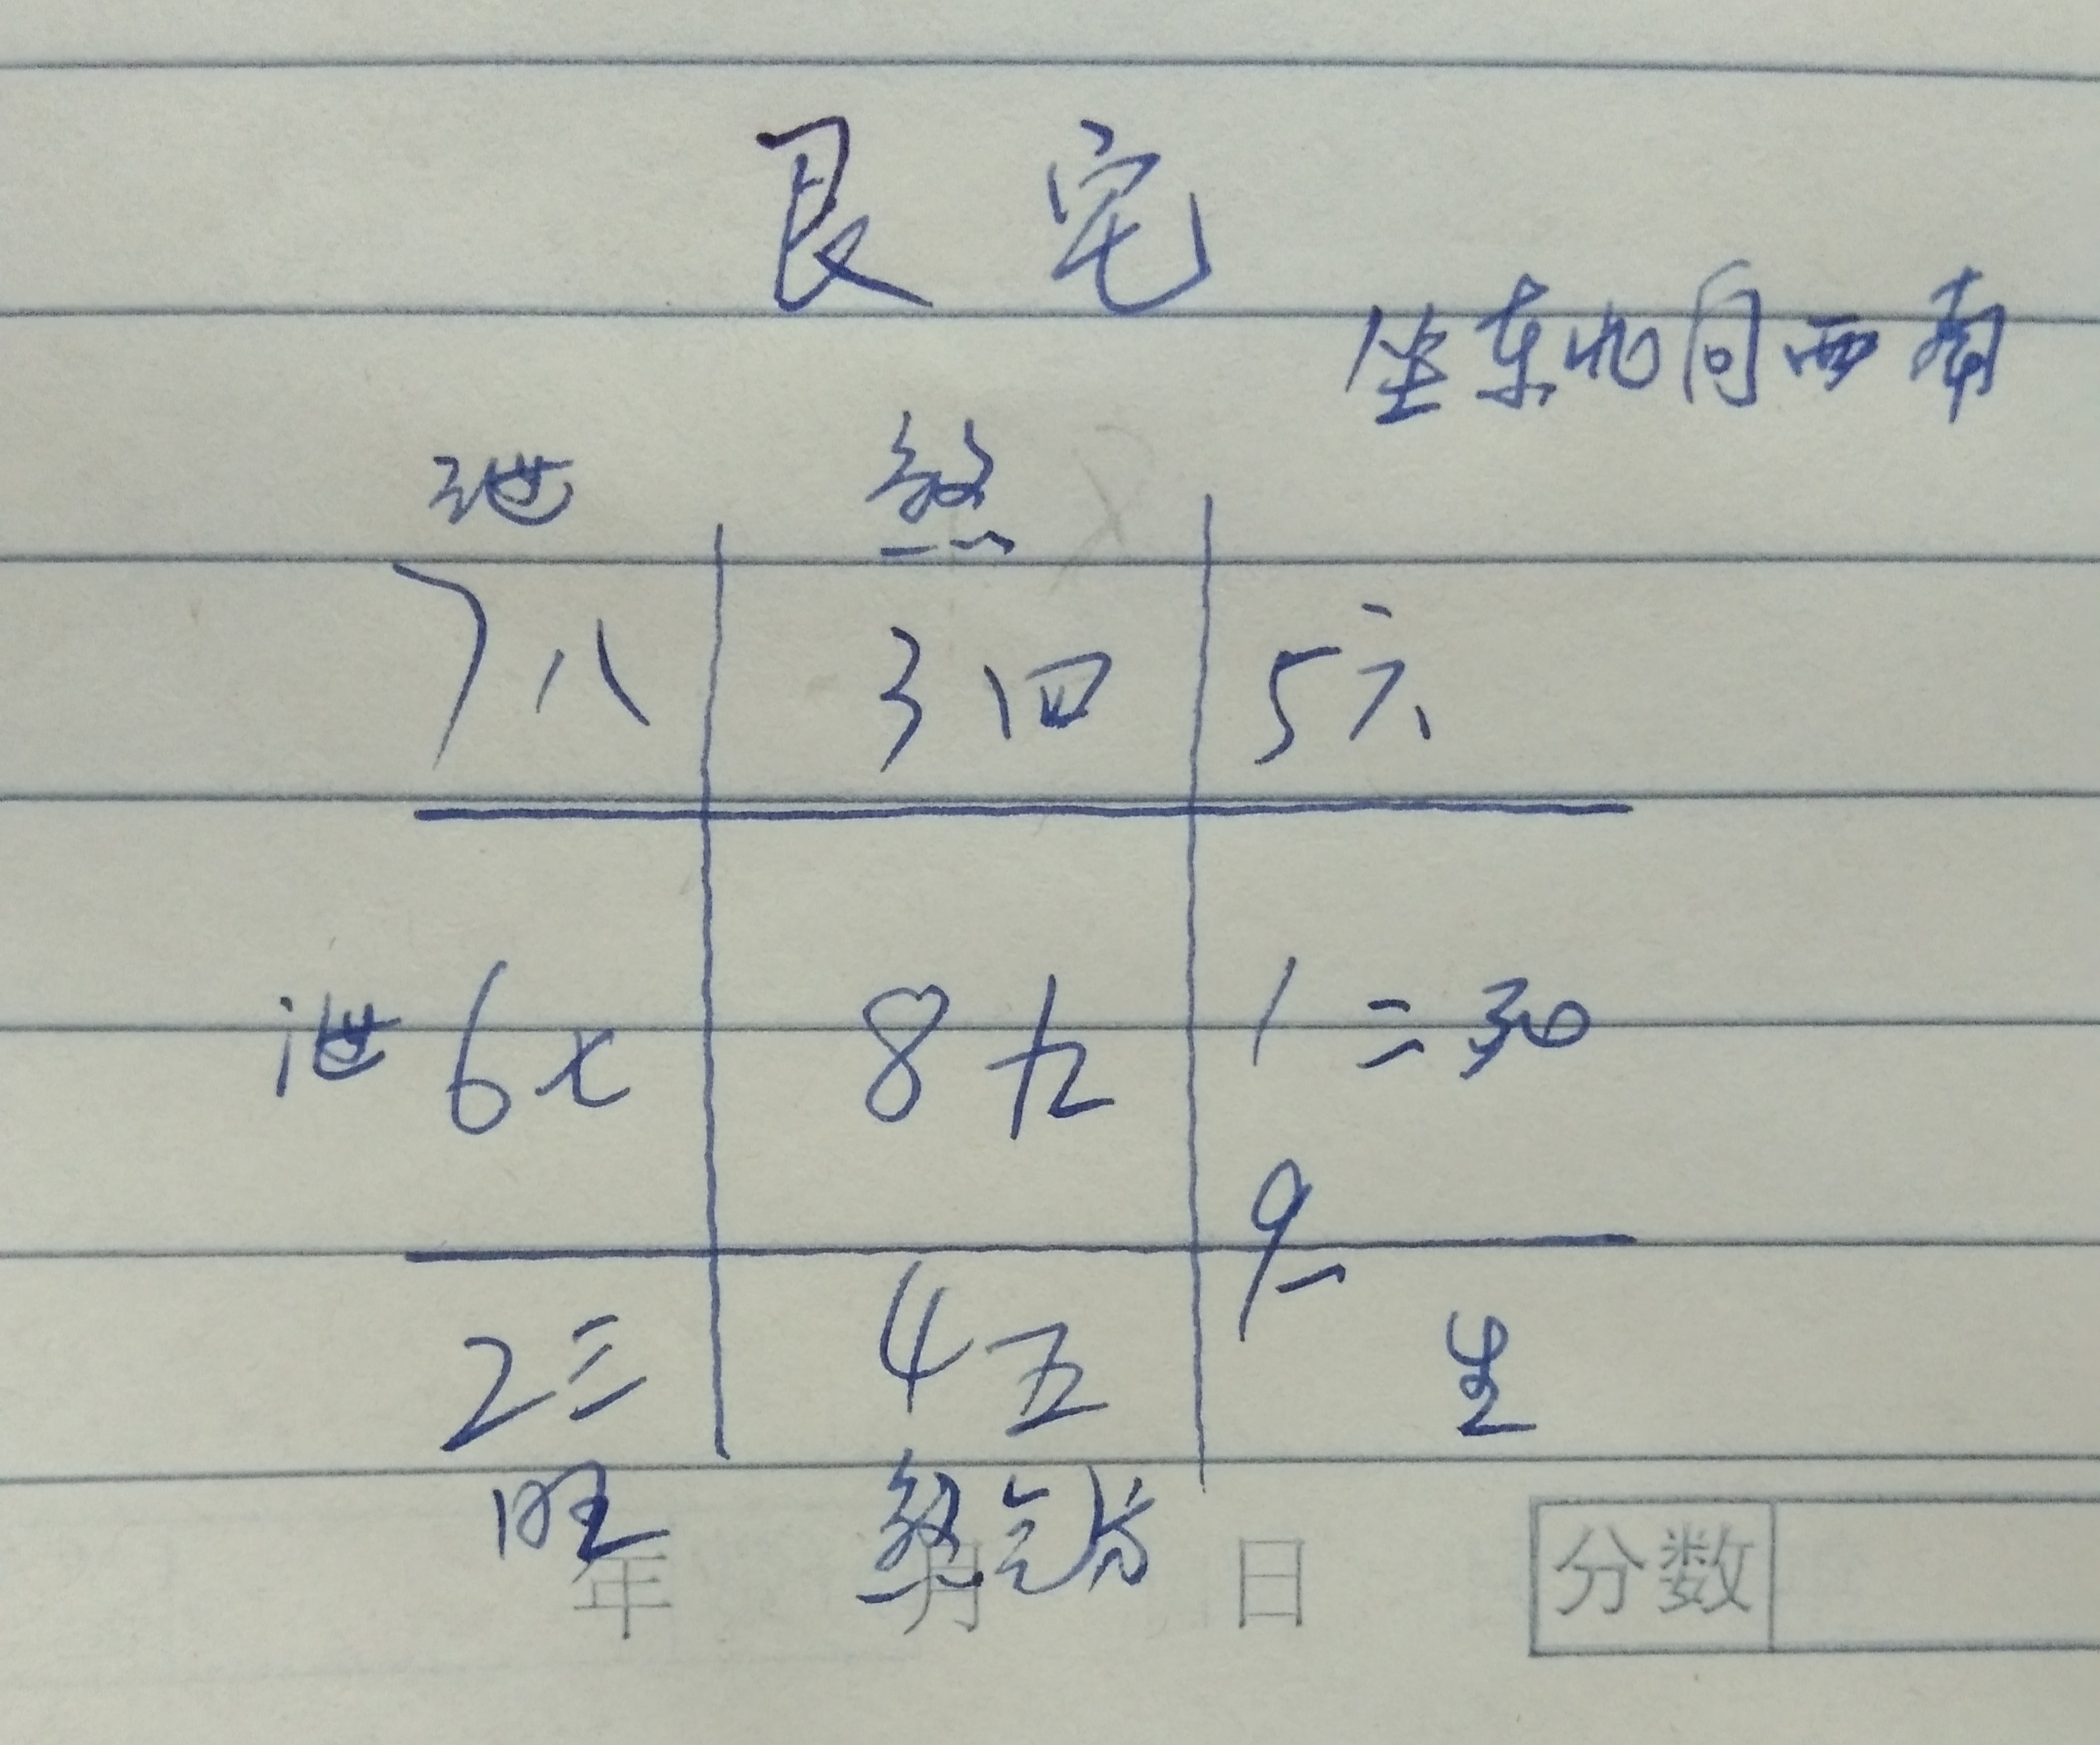 艮宅
坐东北向西南
泄 煞
7八 3四 5六
泄 6七 8九 1二 死
9一
2三 4五 生
旺 煞
年 月 日 分数